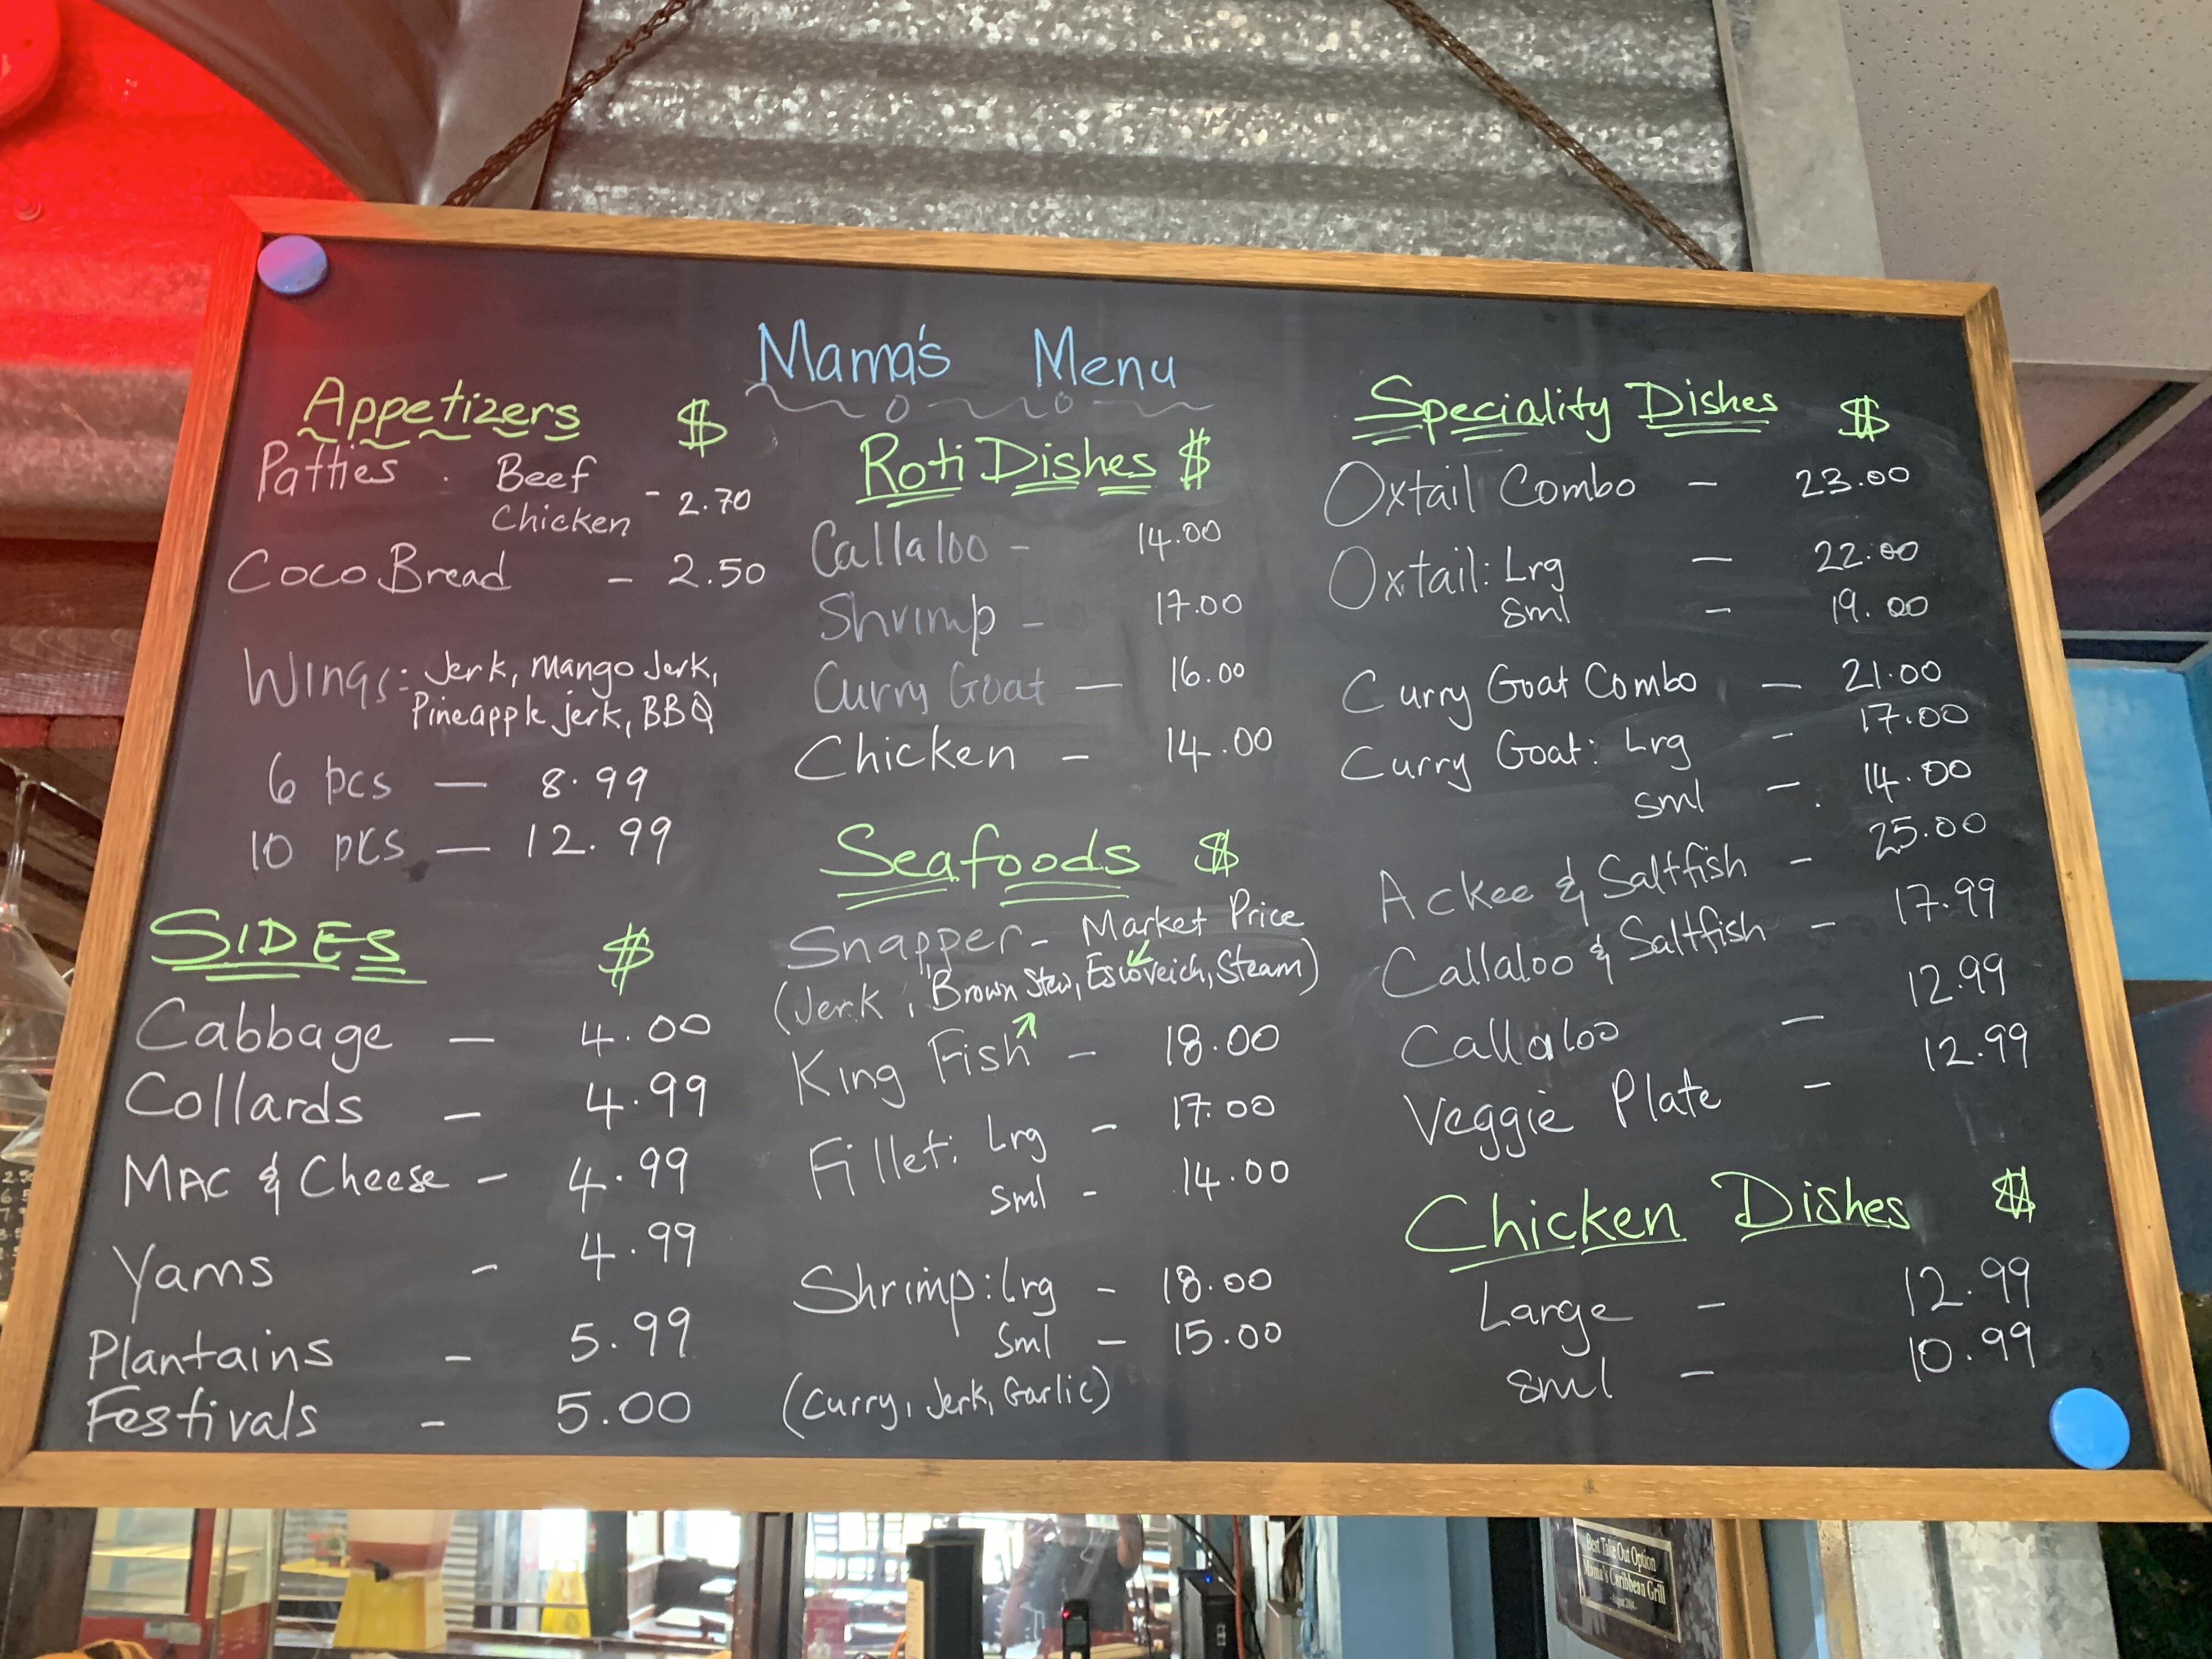 Mama's Menu
Appetizers $
Patties . Beef
Chicken - 2.70
Coco Bread - 2.50
Wings: Jerk, Mango Jerk,
Pineapple jerk, BBQ
6 pcs — 8.99
10 pcs — 12.99
SIDES $
Cabbage — 4.00
Collards - 4.99
MAC & Cheese - 4.99
Yams - 4.99
Plantains - 5.99
Festivals - 5.00
Roti Dishes $
Callaloo - 14.00
Shrimp - 17.00
Curry Goat — 16.00
Chicken - 14.00
Seafoods $
Snapper - Market Price
(Jerk, Brown Stew, Escoveich, Steam)
King Fish - 18.00
Fillet: Lrg - 17.00
Sml - 14.00
Shrimp: Lrg - 18.00
Sml - 15.00
(Curry, Jerk, Garlic)
Speciality Dishes $
Oxtail Combo - 23.00
Oxtail: Lrg — 22.00
Sml - 19.00
Curry Goat Combo — 21.00
Curry Goat: Lrg - 17.00
sml - 14.00
Ackee & Saltfish - 25.00
Callaloo & Saltfish - 17.99
Callaloo — 12.99
Veggie Plate - 12.99
Chicken Dishes $
Large - 12.99
Sml - 10.99
Best Take Out Option
Mama's Caribbean Grill